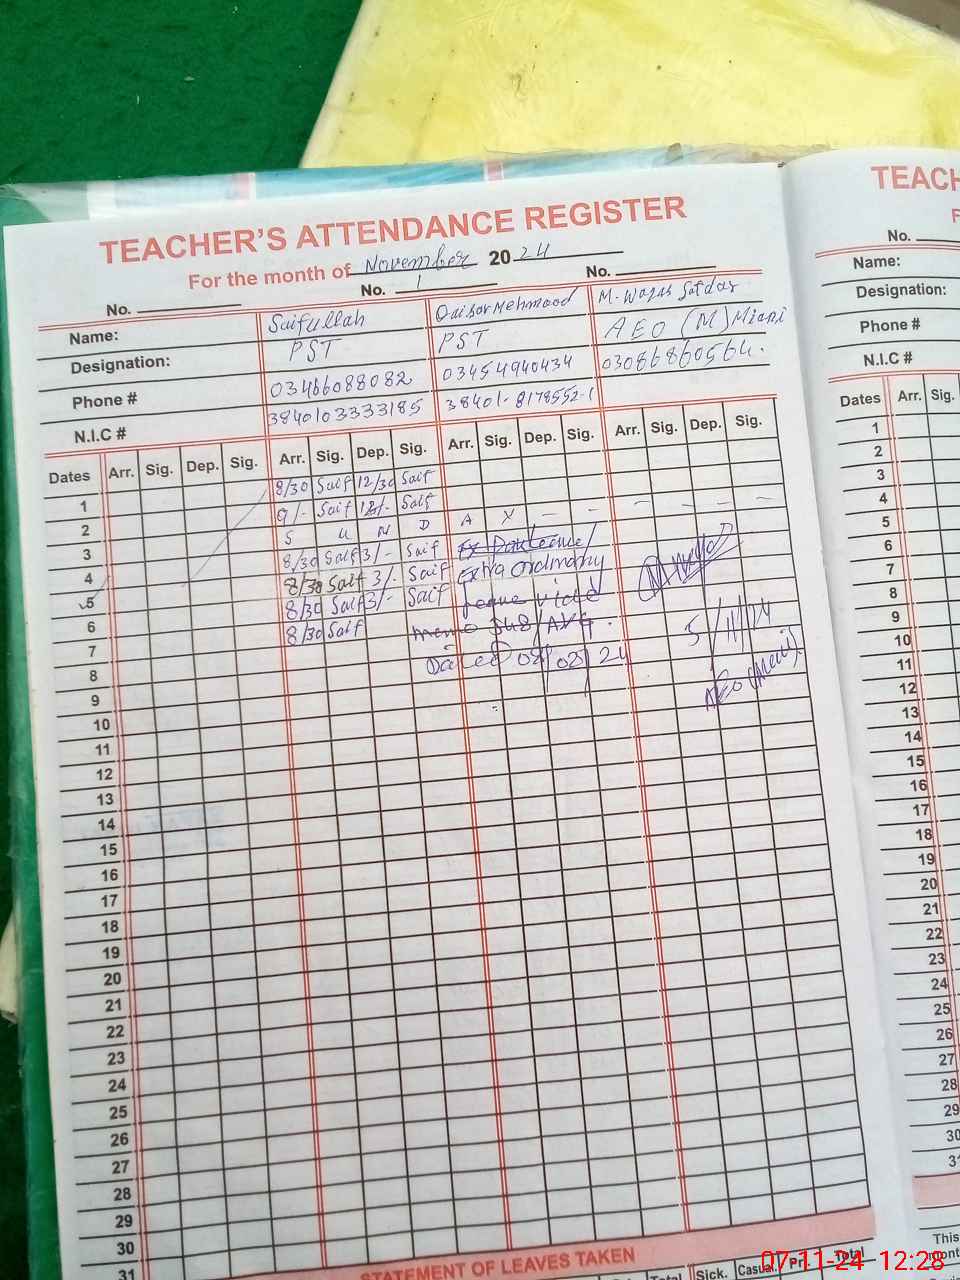 TEACHER'S ATTENDANCE REGISTER
For the month of November 2024
No. No. 1 No.
Name: Saifullah Qaisar Mehmood M. Waqas Safdar
Designation: PST PST AEO (M) Miani
Phone # 03466088082 03454940434 03086860564.
N.I.C # 3840103333185 38401-8178552-1
Dates Arr. Sig. Dep. Sig. Arr. Sig. Dep. Sig. Arr. Sig. Dep. Sig. Arr. Sig. Dep. Sig.
1 8/30 Saif 12/30 Saif
2 9/- Saif 12/- Saif
3 S U N D A Y - - - - - -
4 8/30 Saif 3/- Saif
5 8/30 Saif 3/- Saif Extra Ordinary
6 8/30 Saif 3/- Saif leave vide
7 8/30 Saif memo 348/AVG.
8 Dated 08/08/24
5/11/24
AEO (Miani).
9
10
11
12
13
14
15
16
17
18
19
20
21
22
23
24
25
26
27
28
29
30
31
STATEMENT OF LEAVES TAKEN
Total Sick. Casual. Pr. Total
TEACH
F
No.
Name:
Designation:
Phone #
N.I.C #
Dates Arr. Sig.
1
2
3
4
5
6
7
8
9
10
11
12
13
14
15
16
17
18
19
20
21
22
23
24
25
26
27
28
29
30
31
This
cont
07-11-24 12:28